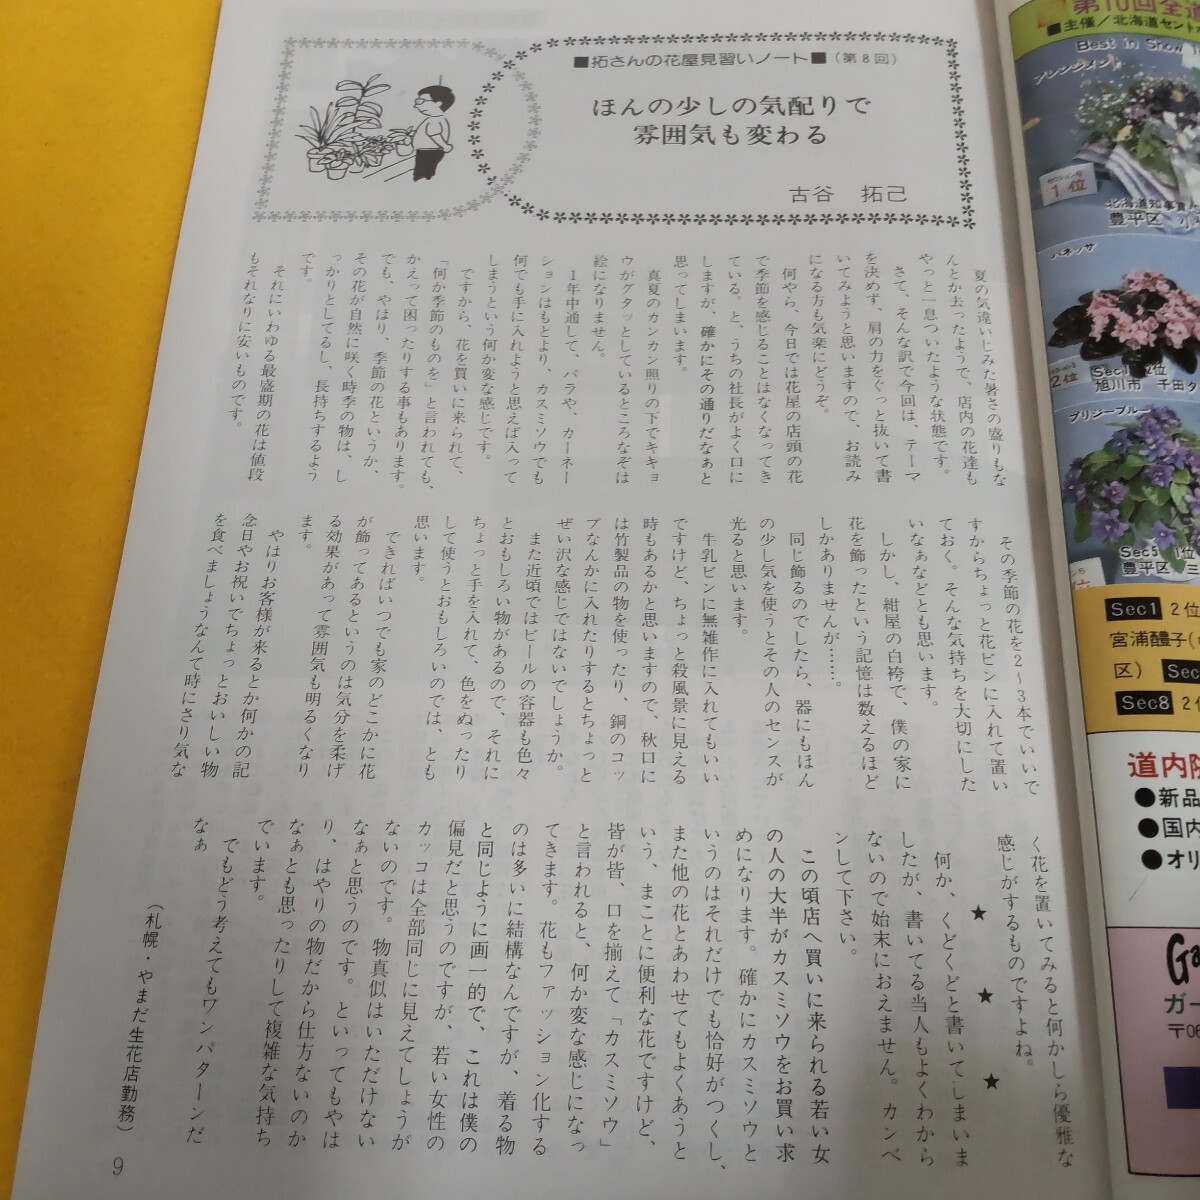 ■拓さんの花屋見習いノート■(第8回)
ほんの少しの気配りで
雰囲気も変わる
古谷 拓己
夏の気違いじみた暑さの盛りもな
んとか去ったようで、店内の花達も
やっと一息ついたような状態です。
さて、そんな訳で今回は、テーマ
を決めず、肩の力をぐっと抜いて書
いてみようと思いますので、お読み
になる方も気楽にどうぞ。
何やら、今日では花屋の店頭の花
で季節を感じることはなくなってき
ている。と、うちの社長がよく口に
しますが、確かにその通りだなぁと
思ってしまいます。
真夏のカンカン照りの下でキキョ
ウがグタッとしているところなぞは
絵になりません。
1年中通して、バラや、カーネー
ションはもとより、カスミソウでも
何でも手に入れようと思えば入って
しまうという何か変な感じです。
ですから、花を買いに来られて、
「何か季節のものを」と言われても、
かえって困ったりする事もあります。
でも、やはり、季節の花というか、
その花が自然に咲く時季の物は、し
っかりとしてるし、長持ちするよう
です。
それにいわゆる最盛期の花は値段
もそれなりに安いものです。
その季節の花を2〜3本でいいで
すからちょっと花ビンに入れて置い
ておく。そんな気持ちを大切にした
いなぁなどとも思います。
しかし、紺屋の白袴で、僕の家に
花を飾ったという記憶は数えるほど
しかありませんが……。
同じ飾るのでしたら、器にもほん
の少し気を使うとその人のセンスが
光ると思います。
牛乳ビンに無雑作に入れてもいい
ですけど、ちょっと殺風景に見える
時もあるかと思いますので、秋口に
は竹製品の物を使ったり、銅のコッ
プなんかに入れたりするとちょっと
ぜい沢な感じではないでしょうか。
また近頃ではビールの容器も色々
とおもしろい物があるので、それに
ちょっと手を入れて、色をぬったり
して使うとおもしろいのでは、とも
思います。
できればいつでも家のどこかに花
が飾ってあるというのは気分を柔げ
る効果があって雰囲気も明るくなり
ます。
やはりお客様が来るとか何かの記
念日やお祝いでちょっとおいしい物
を食べましょうなんて時にさり気な
く花を置いてみると何かしら優雅な
感じがするものですよね。
★ ★ ★
何か、くどくどと書いてしまいま
したが、書いてる当人もよくわから
ないので始末におえません。カンベ
ンして下さい。
この頃店へ買いに来られる若い女
の人の大半がカスミソウをお買い求
めになります。確かにカスミソウと
いうのはそれだけでも恰好がつくし、
また他の花とあわせてもよくあうと
いう、まことに便利な花ですけど、
皆が皆、口を揃えて「カスミソウ」
と言われると、何か変な感じになっ
てきます。花もファッション化する
のは多いに結構なんですが、着る物
と同じように画一的で、これは僕の
偏見だと思うのですが、若い女性の
カッコは全部同じに見えてしょうが
ないのです。物真似はいただけない
なぁと思うのです。といってもやは
り、はやりの物だから仕方ないのか
なぁとも思ったりして複雑な気持ち
でいます。
でもどう考えてもワンパターンだ
なぁ
(札幌・やまだ生花店勤務)
9
第10回全道
■主催/北海道セント
Best in Show
アレンジメント
1位
北海道知事賞
豊平区
バネッサ
2位
Sec1 2位
旭川市 千田
ブリジーブルー
Sec5 1位
豊平区 三
位
Sec1 2位
宮浦醴子(
区) Sec
Sec8 2位
道内
●新品
●国内
●オリ
Ga
ガー
〒06